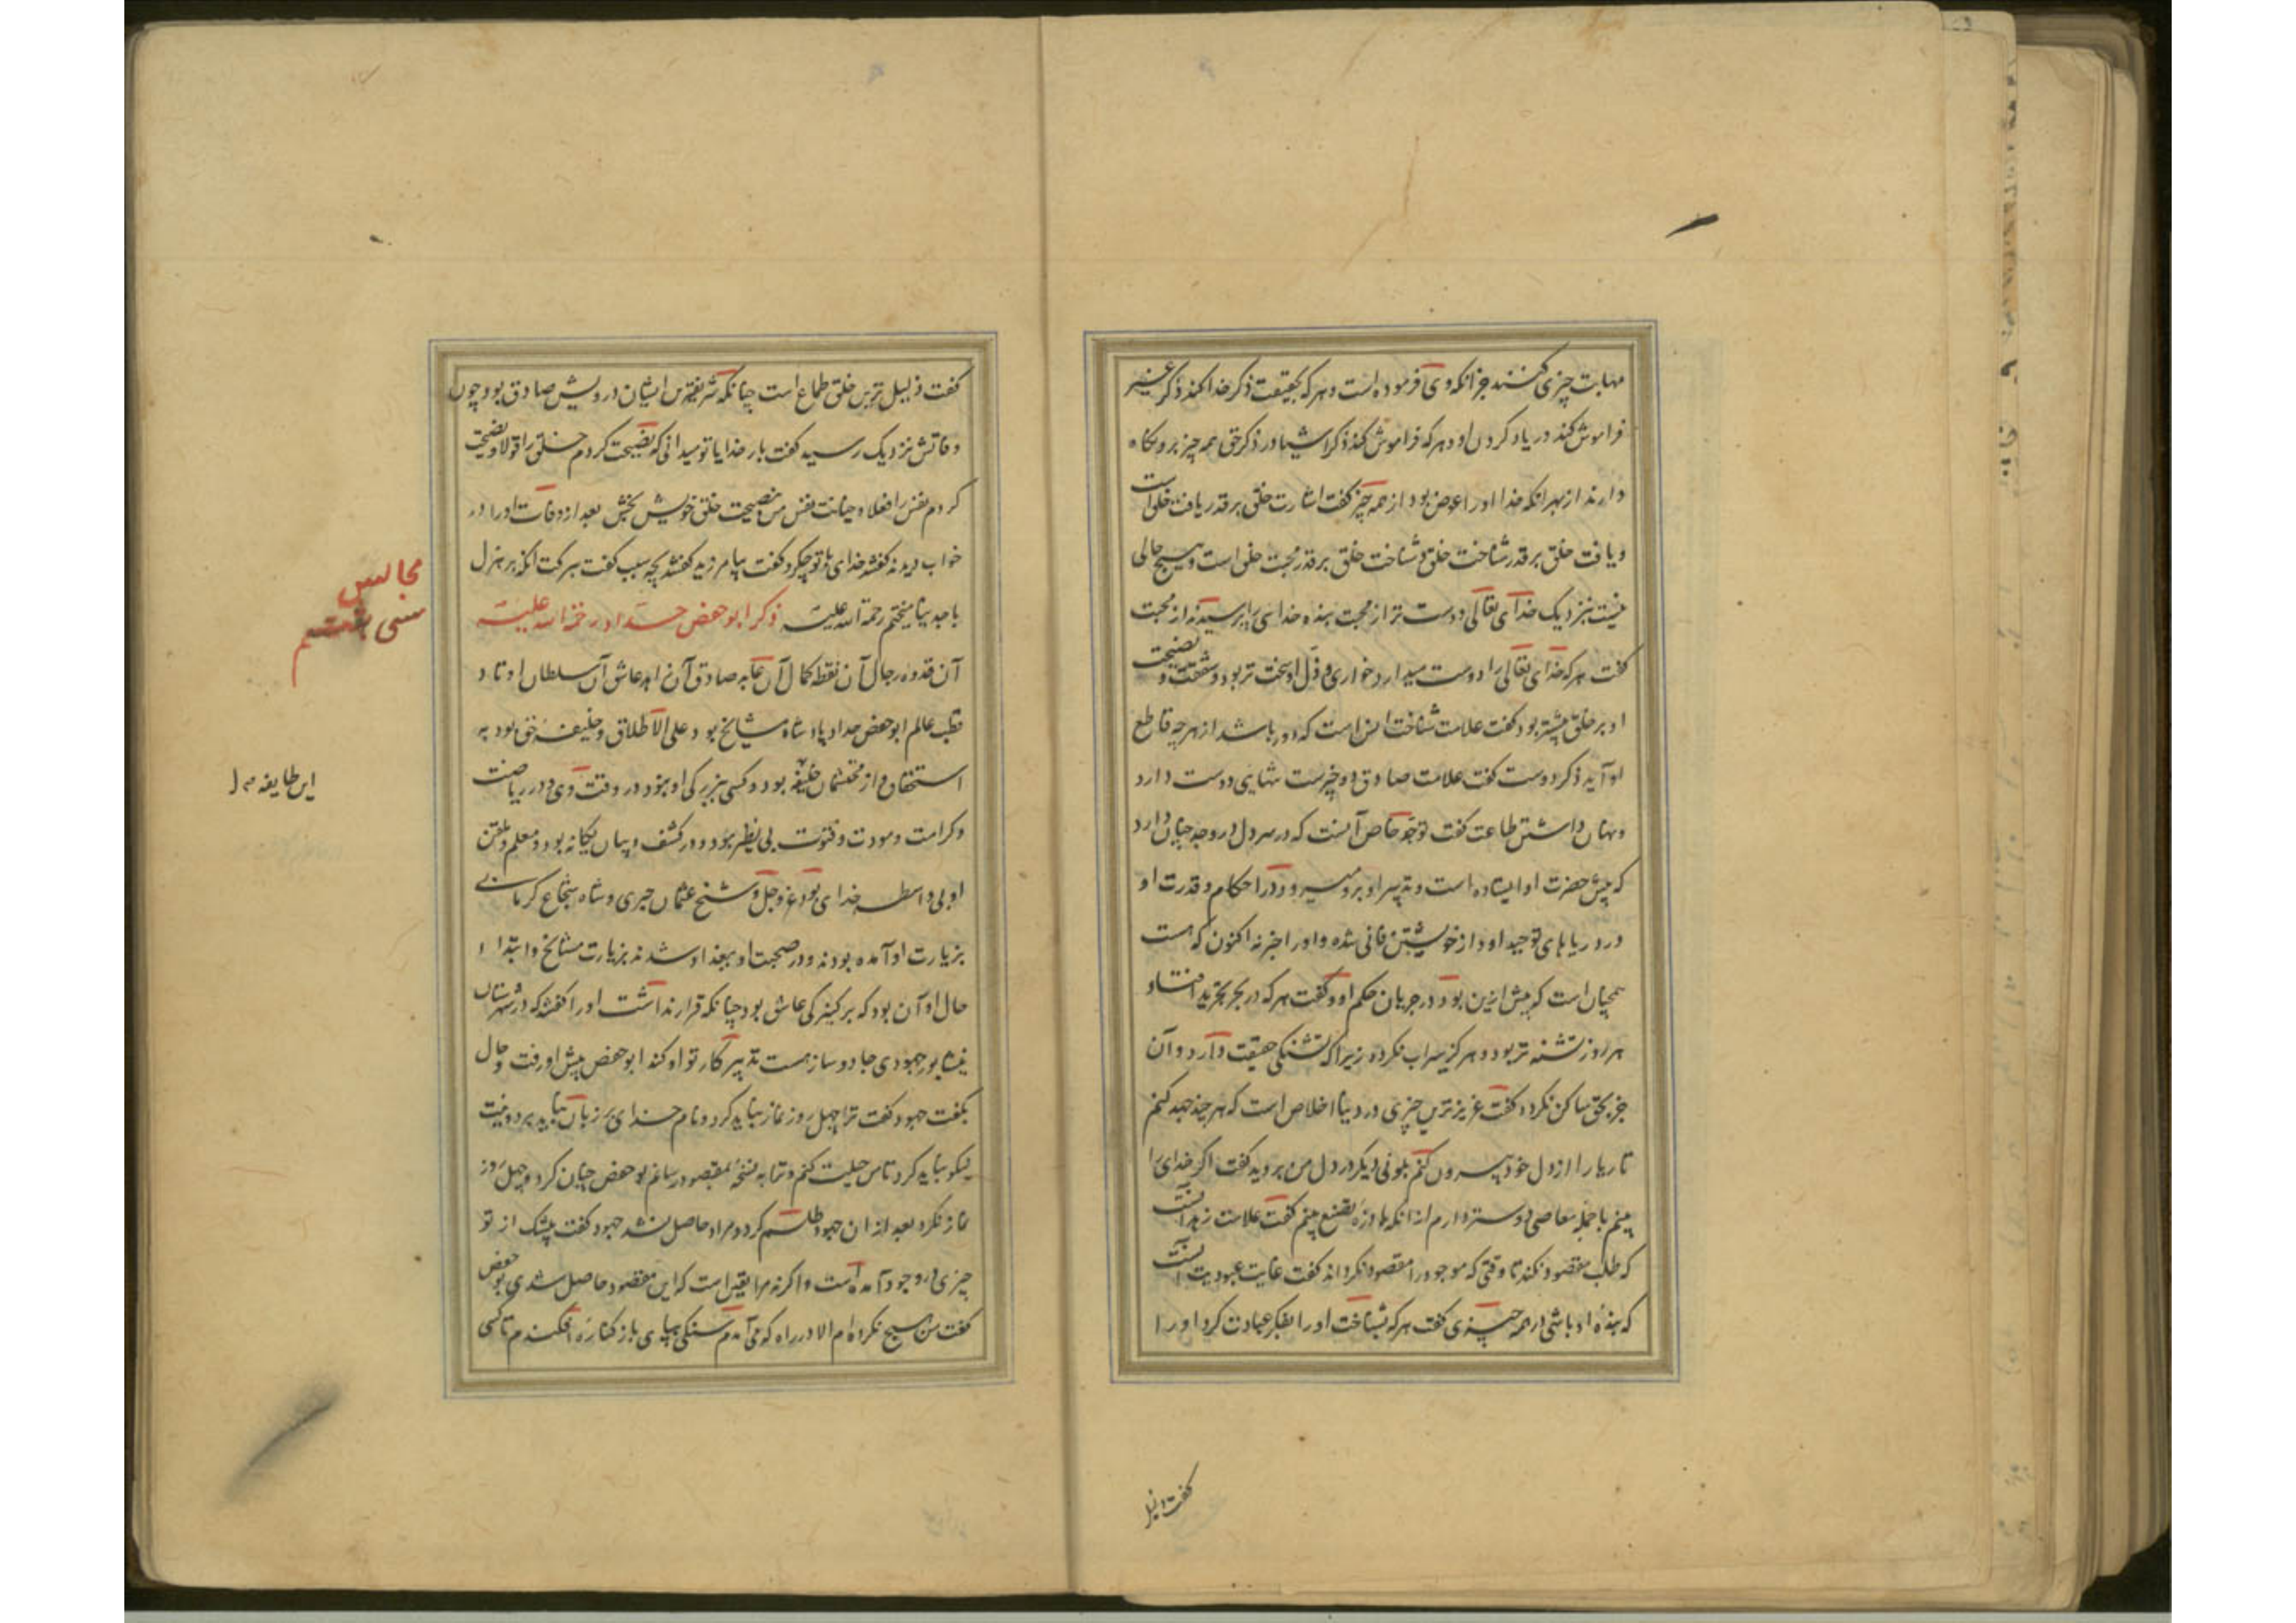 مهابت چیزی کنند جز انکه وی فرموده است و هرکه بحقیقت ذکر خدا کند ذکر غیر
فراموش کند در یاد کردن او و هرکه فراموش کند ذکر اشیا در ذکر حق همه چیز برو نکاه
دارند از بهر انکه خدا او را عوض بود از همه چیز کفت اشارت خلق بر قدر یافت خلق است
و یافت خلق بر قدر شناخت خلق و شناخت خلق بر قدر محبت خلق است و هیچ حالی
نیست بنزدیک خدای تعالی دوست تر از محبت بنده خدای را پرسیدند از محبت
کفت هرکه خدای تعالی را دوست میدارد خواری و ذل او سخت تر بود و شفقت و نصیحت
او بر خلق بیشتر بود کفت علامت شناخت انس است که دور باشد از هرچه قاطع
او آید ذکر دوست کفت علامت صادق دو چیزست تنهایی دوست دارد
و نهان داشتن طاعت کفت توحید خاص آنست که در سر دل در وجد چنان دارد
که پیش حضرت او ایستاده است و تدبیر او برو میرود در احکام و قدرت او
در دریاهای توحید او و از خویشتن فانی شده و او را خبر نه اکنون که هست
همچنان است که پیش ازین بود در جریان حکم او و کفت هرکه در بحر تجرید افتاد او
هر روز تشنه تر بود و هرکز سیراب نکردد زیرا که تشنکی حقیقت دارد و آن
جز بحق ساکن نکردد کفت عزیزترین چیزی در دنیا اخلاص است که هرچند جهد کنم
تا ریا را از دل خود بیرون کنم بلونی دیکر در دل من بروید کفت اکر خدای را
بینم با جمله معاصی دوستر دارم از انکه با ذره تصنع بینم کفت علامت زهد آنست
که طلب مقصود نکند تا وقتی که موجود را مقصود نکرداند کفت غایت عبودیت آنست
که بنده او باشی در همه چیزی کفت هرکه بشناخت او را بفکر عبادت کرد او را
کفت ذلیل
کفت ذلیل ترین خلق طماع است چنانکه شریفترین ایشان درویش صادق بود چون
وفاتش نزدیک رسید کفت بار خدایا تو میدانی که نصیحت کردم خلق را قولا و نصیحت
کردم نفس را فعلا و خیانت نفس من بنصیحت خلق خویش بخش بعد از وفات او را در
خواب دیدند کفتند خدای با تو چکرد کفت بیامرزید کفتند بچه سبب کفت ببرکت انکه بر هزل
با جد نیامیختم رحمة الله علیه ذکر ابوحفص حداد رحمة الله علیه
مجالس
سی هفتم
آن قدوه رجال آن نقطه کمال آن عابد صادق آن زاهد عاشق آن سلطان اوتاد
قطب عالم ابوحفص حداد پادشاه مشایخ بود علی الاطلاق و خلیفه حق بود به
استحقاق و از محتشمان طایفه بود و کسی ببزرکی او نبود در وقت وی و در ریاضت
این طایفه
و کرامت و مروت و فتوت بی نظیر بود و در کشف و بیان یکانه بود و معلم و ملقن
او بی واسطه خدای بود عز و جل و شیخ عثمان حیری و شاه شجاع کرمانی
بزیارت او آمده بودند و در صحبت او ببغداد شدند بزیارت مشایخ و ابتدا
حال او آن بود که بر کنیزکی عاشق بود چنانکه قرار نداشت او را کفتند که در شهرستان
نیشابور جهودی جادو ساز هست تدبیر کار تو او کند ابوحفص پیش او رفت و حال
بکفت جهود کفت ترا چهل روز نماز نباید کرد و نام خدای بر زبان نباید برد و نیت
نیکو نباید کرد تا من حیلت کنم و ترا به نسخه بمقصود رسانم بوحفص چنان کرد و چهل روز
نماز نکرد بعد از ان جهود طلسم کرد و مراد حاصل نشد جهود کفت بیشک از تو
چیزی در وجود آمده است و اکر نه مرا یقین است که این مقصود حاصل شدی بوحفص
کفت من هیچ نکرده ام الا در راه که می آمدم سنکی بپای باز کناره افکندم تا کسی